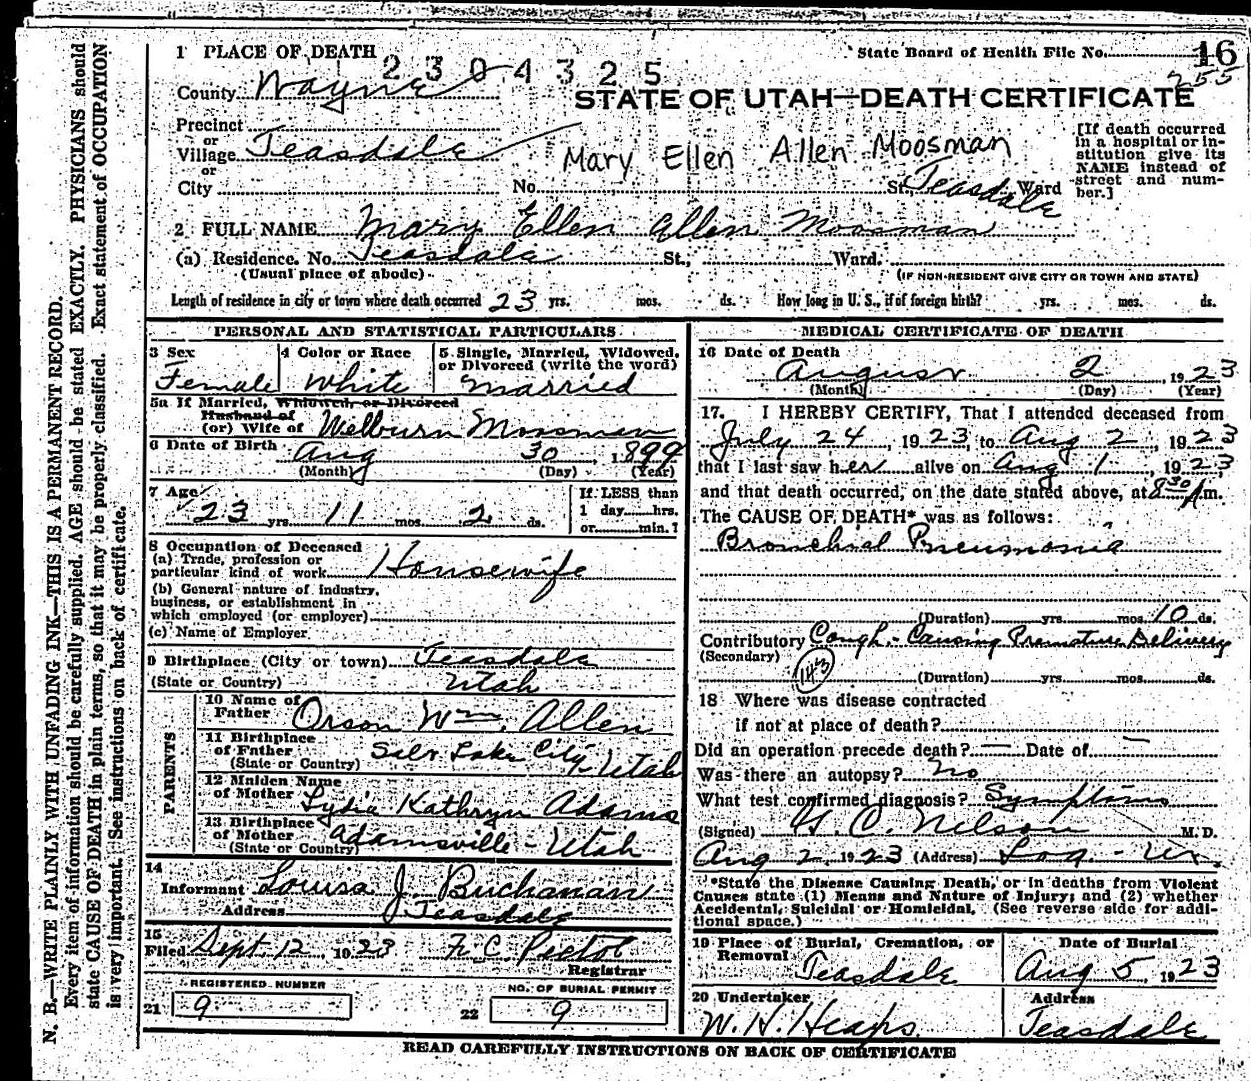 1 PLACE OF DEATH
2304325
State Board of Health File No. 16
255
County Wayne
STATE OF UTAH—DEATH CERTIFICATE
Precinct
or
Village Teasdale
or
City No. St. Teasdale Ward
Mary Ellen Allen Moosman
[If death occurred in a hospital or in-
stitution give its
NAME instead of
street and num-
ber.]
2 FULL NAME Mary Ellen Allen Moosman
(a) Residence. No. Teasdale St., Ward.
(Usual place of abode) (IF NON-RESIDENT GIVE CITY OR TOWN AND STATE)
Length of residence in city or town where death occurred 23 yrs. mos. ds. How long in U. S., if of foreign birth? yrs. mos. ds.
PERSONAL AND STATISTICAL PARTICULARS
3 Sex Female
4 Color or Race White
5 Single, Married, Widowed,
or Divorced (write the word)
Married
5a If Married, Widowed, or Divorced
Husband of
(or) Wife of Welburn Moosman
6 Date of Birth Aug 30, 1899
(Month) (Day) (Year)
7 Age 23 yrs. 11 mos. 2 ds.
If LESS than
1 day hrs.
or min.?
8 Occupation of Deceased
(a) Trade, profession or
particular kind of work Housewife
(b) General nature of industry,
business, or establishment in
which employed (or employer)
(c) Name of Employer
9 Birthplace (City or town) Teasdale
(State or Country) Utah
PARENTS
10 Name of
Father Orson Wm. Allen
11 Birthplace
of Father
(State or Country) Salt Lake City Utah
12 Maiden Name
of Mother Lydia Kathryn Adams
13 Birthplace
of Mother
(State or Country) Adamsville - Utah
14
Informant Louisa J. Buchanan
Address Teasdale
15
Filed Sept. 12, 1923
Registrar
REGISTERED NUMBER
21 9
NO. OF BURIAL PERMIT
22 9
MEDICAL CERTIFICATE OF DEATH
16 Date of Death
August 2, 1923
(Month) (Day) (Year)
17. I HEREBY CERTIFY, That I attended deceased from
July 24, 1923, to Aug 2, 1923
that I last saw her alive on Aug 1, 1923
and that death occurred, on the date stated above, at 8 30 A.m.
The CAUSE OF DEATH* was as follows:
Bronchial Pneumonia
(Duration) yrs. mos. 10 ds.
Contributory Cough - Causing Premature Delivery
(Secondary)
(Duration) yrs. mos. ds.
18 Where was disease contracted
if not at place of death?
Did an operation precede death? — Date of —
Was there an autopsy? no
What test confirmed diagnosis? Symptoms
(Signed) G. C. Nelson M.D.
Aug 2, 1923 (Address) Loa - Ut.
*State the Disease Causing Death, or in deaths from Violent
Causes state (1) Means and Nature of Injury; and (2) whether
Accidental, Suicidal or Homicidal. (See reverse side for addi-
tional space.)
19 Place of Burial, Cremation, or
Removal Teasdale
Date of Burial
Aug 5, 1923
20 Undertaker
W. H. Heaps.
Address
Teasdale
READ CAREFULLY INSTRUCTIONS ON BACK OF CERTIFICATE
N. B.—WRITE PLAINLY WITH UNFADING INK—THIS IS A PERMANENT RECORD.
Every item of information should be carefully supplied. AGE should be stated EXACTLY. PHYSICIANS should
state CAUSE OF DEATH in plain terms, so that it may be properly classified. Exact statement of OCCUPATION
is very important. See instructions on back of certificate.